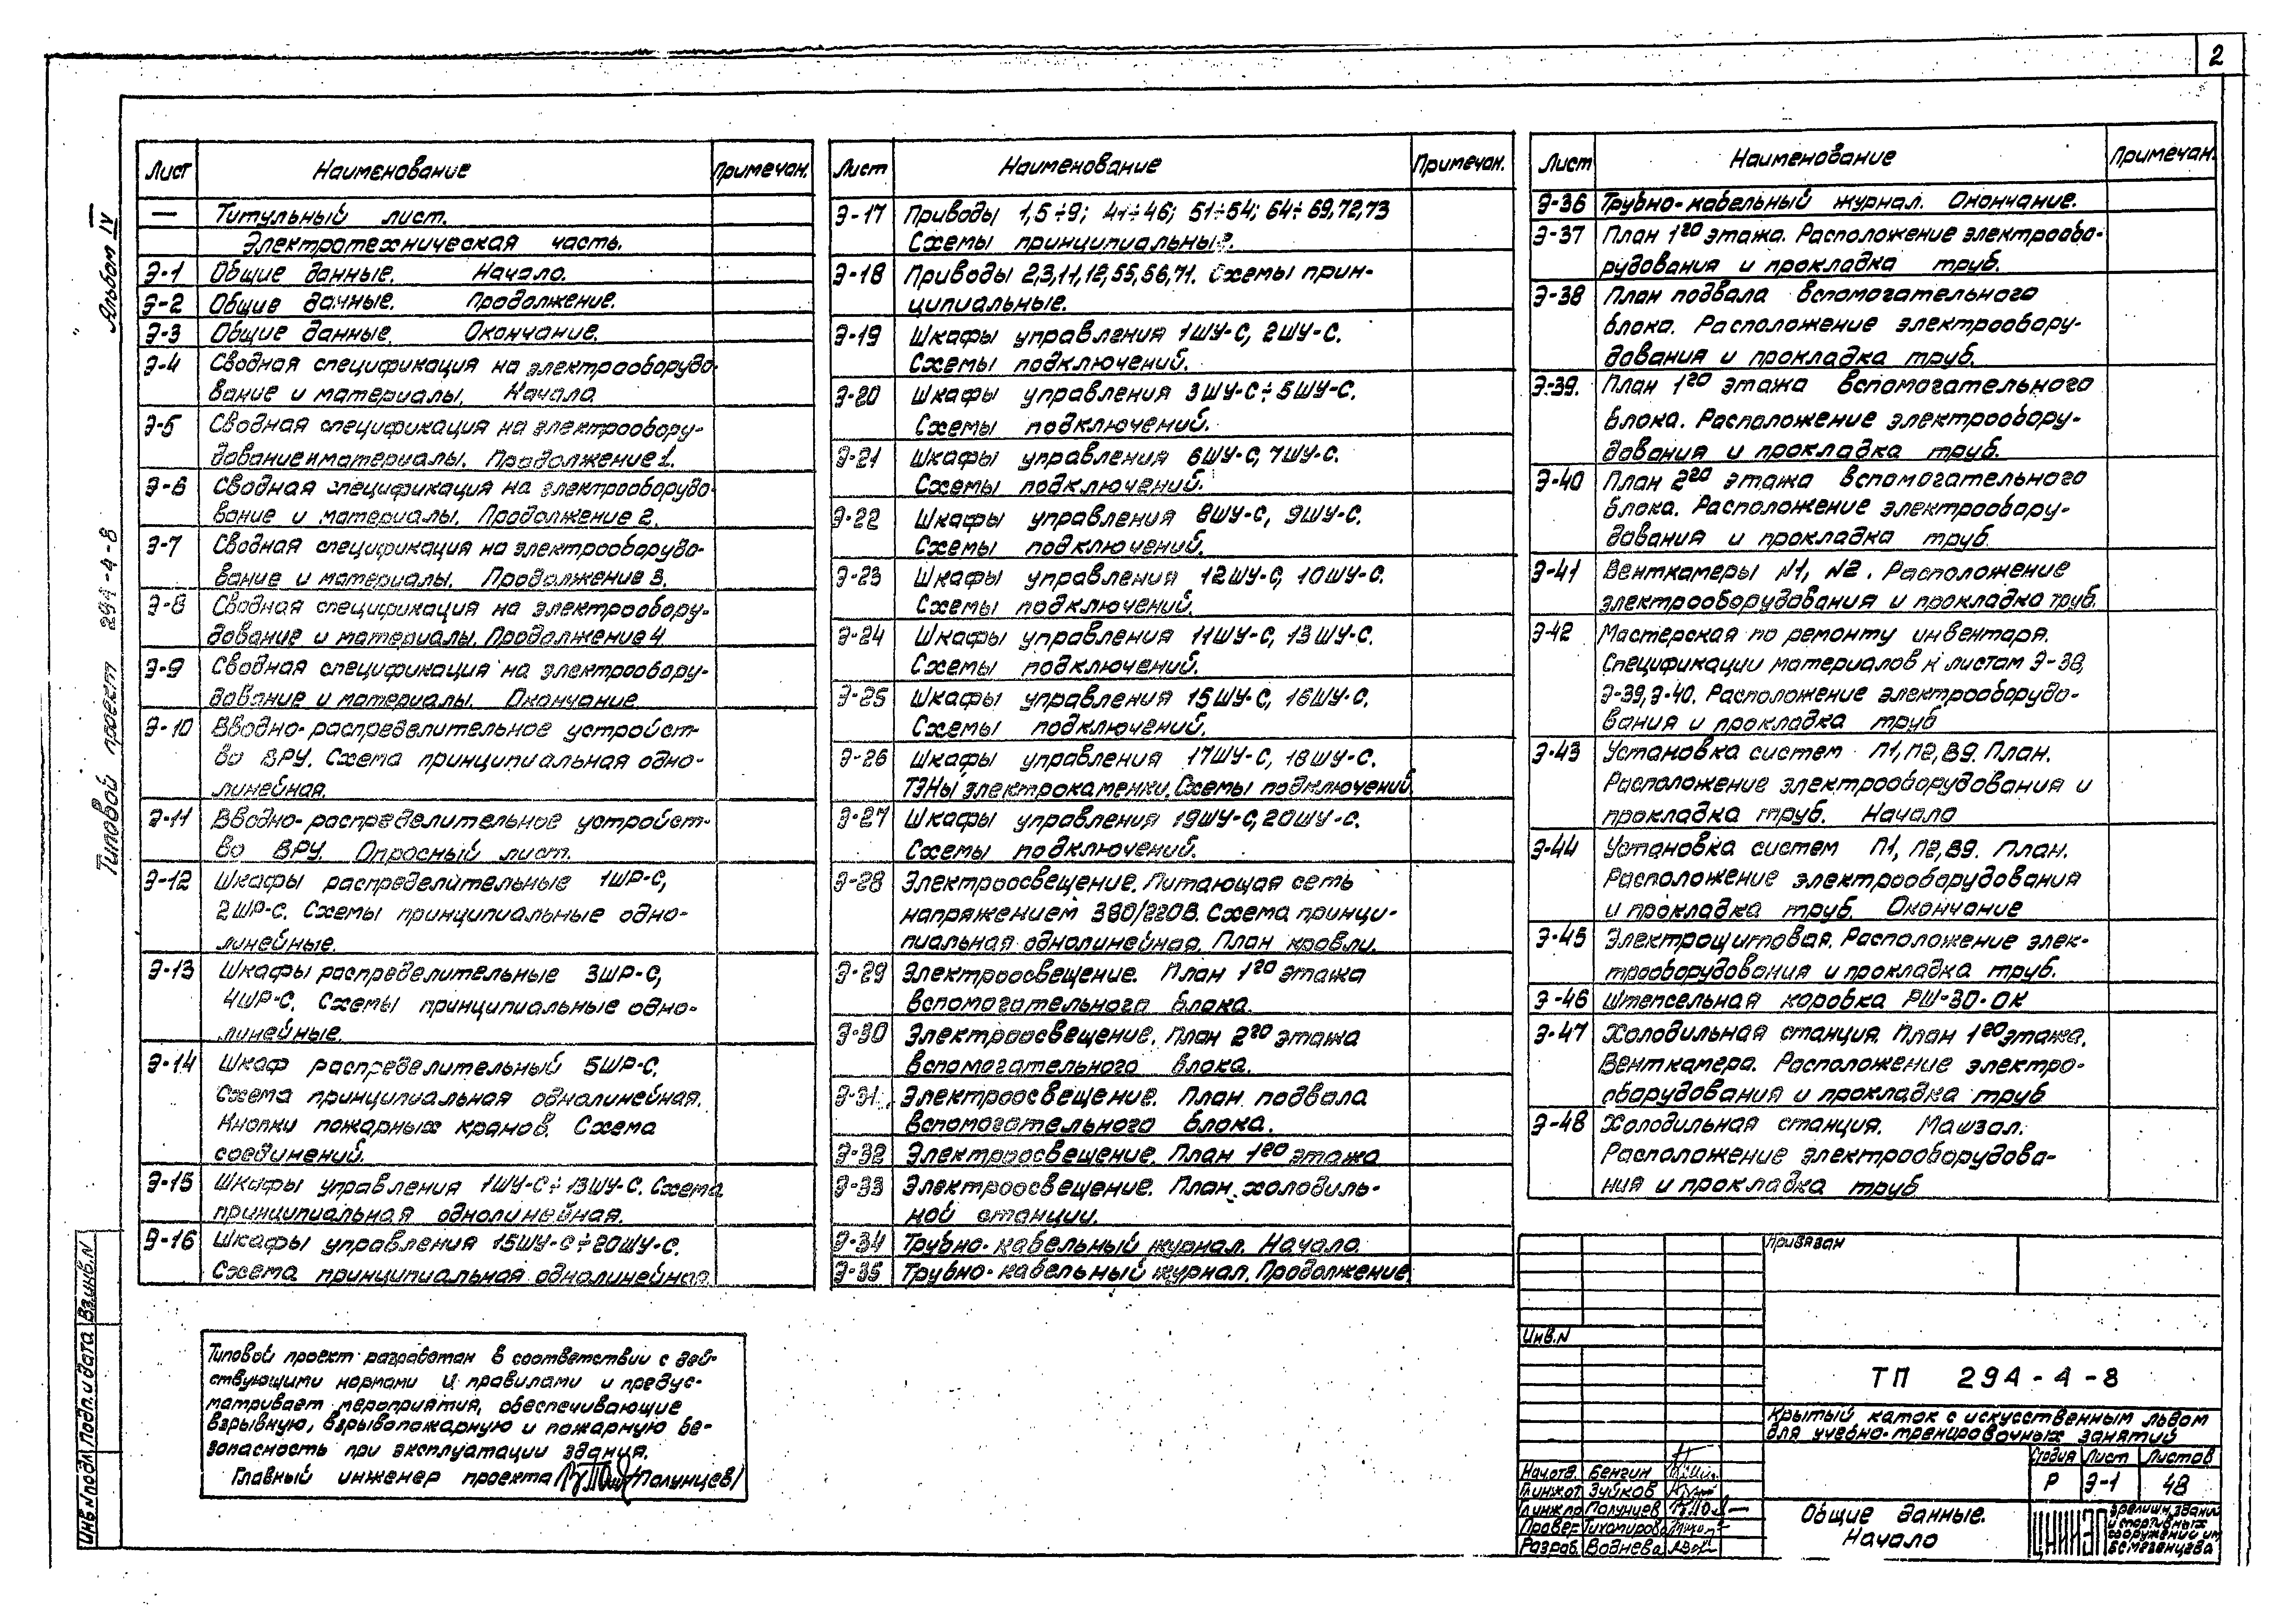 2
Альбом IV
Типовой проект 294-4-8
Лист Наименование Примечан.
— Титульный лист.
Электротехническая часть.
Э-1 Общие данные. Начало.
Э-2 Общие данные. Продолжение.
Э-3 Общие данные. Окончание.
Э-4 Сводная спецификация на электрооборудо-
вание и материалы. Начало.
Э-5 Сводная спецификация на электрообору-
дование и материалы. Продолжение 1.
Э-6 Сводная спецификация на электрооборудо-
вание и материалы. Продолжение 2.
Э-7 Сводная спецификация на электрооборудо-
вание и материалы. Продолжение 3.
Э-8 Сводная спецификация на электрообору-
дование и материалы. Продолжение 4.
Э-9 Сводная спецификация на электрообору-
дование и материалы. Окончание
Э-10 Вводно-распределительное устройст-
во ВРУ. Схема принципиальная одно-
линейная.
Э-11 Вводно-распределительное устройст-
во ВРУ. Опросный лист.
Э-12 Шкафы распределительные 1ШР-С,
2ШР-С. Схемы принципиальные одно-
линейные.
Э-13 Шкафы распределительные 3ШР-С,
4ШР-С. Схемы принципиальные одно-
линейные.
Э-14 Шкаф распределительный 5ШР-С.
Схема принципиальная однолинейная.
Кнопки пожарных кранов. Схема
соединений.
Э-15 Шкафы управления 1ШУ-С÷13ШУ-С. Схема
принципиальная однолинейная.
Э-16 Шкафы управления 15ШУ-С÷20ШУ-С.
Схема принципиальная однолинейная.
Лист Наименование Примечан.
Э-17 Приводы 1,5÷9; 41÷46; 51÷54; 64÷69,72,73
Схемы принципиальные.
Э-18 Приводы 2,3,11,12,55,56,71. Схемы прин-
ципиальные.
Э-19 Шкафы управления 1ШУ-С, 2ШУ-С.
Схемы подключений.
Э-20 Шкафы управления 3ШУ-С÷5ШУ-С.
Схемы подключений.
Э-21 Шкафы управления 6ШУ-С, 7ШУ-С.
Схемы подключений.
Э-22 Шкафы управления 8ШУ-С, 9ШУ-С.
Схемы подключений.
Э-23 Шкафы управления 12ШУ-С, 10ШУ-С.
Схемы подключений.
Э-24 Шкафы управления 11ШУ-С, 13ШУ-С.
Схемы подключений.
Э-25 Шкафы управления 15ШУ-С, 16ШУ-С.
Схемы подключений.
Э-26 Шкафы управления 17ШУ-С, 18ШУ-С.
ТЭНы электрокаменки. Схемы подключений
Э-27 Шкафы управления 19ШУ-С, 20ШУ-С.
Схемы подключений.
Э-28 Электроосвещение. Питающая сеть
напряжением 380/220В. Схема принци-
пиальная однолинейная. План кровли.
Э-29 Электроосвещение. План 1го этажа
вспомогательного блока.
Э-30 Электроосвещение. План 2го этажа
вспомогательного блока.
Э-31 Электроосвещение. План подвала
вспомогательного блока.
Э-32 Электроосвещение. План 1го этажа
Э-33 Электроосвещение. План холодиль-
ной станции.
Э-34 Трубно-кабельный журнал. Начало.
Э-35 Трубно-кабельный журнал. Продолжение.
Лист Наименование Примечан.
Э-36 Трубно-кабельный журнал. Окончание.
Э-37 План 1го этажа. Расположение электрообо-
рудования и прокладка труб.
Э-38 План подвала вспомогательного
блока. Расположение электрообору-
дования и прокладка труб.
Э-39. План 1го этажа вспомогательного
блока. Расположение электрообору-
дования и прокладка труб.
Э-40 План 2го этажа вспомогательного
блока. Расположение электрообору-
дования и прокладка труб.
Э-41 Венткамеры N1, N2. Расположение
электрооборудования и прокладка труб.
Э-42 Мастерская по ремонту инвентаря.
Спецификации материалов к листам Э-38,
Э-39, Э-40. Расположение электрооборудо-
вания и прокладка труб
Э-43 Установка систем П1, П2, В9. План.
Расположение электрооборудования и
прокладка труб. Начало
Э-44 Установка систем П1, П2, В9. План.
Расположение электрооборудования
и прокладка труб. Окончание
Э-45 Электрощитовая. Расположение элек-
трооборудования и прокладка труб.
Э-46 Штепсельная коробка РШ-30-ОК
Э-47 Холодильная станция. План 1го этажа.
Венткамера. Расположение электро-
оборудования и прокладка труб
Э-48 Холодильная станция. Машзал.
Расположение электрооборудова-
ния и прокладка труб
Типовой проект разработан в соответствии с дей-
ствующими нормами и правилами и предус-
матривает мероприятия, обеспечивающие
взрывную, взрывопожарную и пожарную бе-
зопасность при эксплуатации здания.
Главный инженер проекта /Полунцев/
Привязан
Инв.N
ТП 294-4-8
Крытый каток с искусственным льдом
для учебно-тренировочных занятий
Стадия Лист Листов
Р Э-1 48
Общие данные.
Начало
ЦНИИЭП зрелищн. зданий
и спортивных
сооружений им.
Б.С. Мезенцева
Нач.отд. Бенгин
Гл.инж.от. Зуйков
Гл.инж.пр. Полунцев
Провер. Тихомирова
Разраб. Воднева
Инв.N подл. Подп. и дата Взам.инв.N